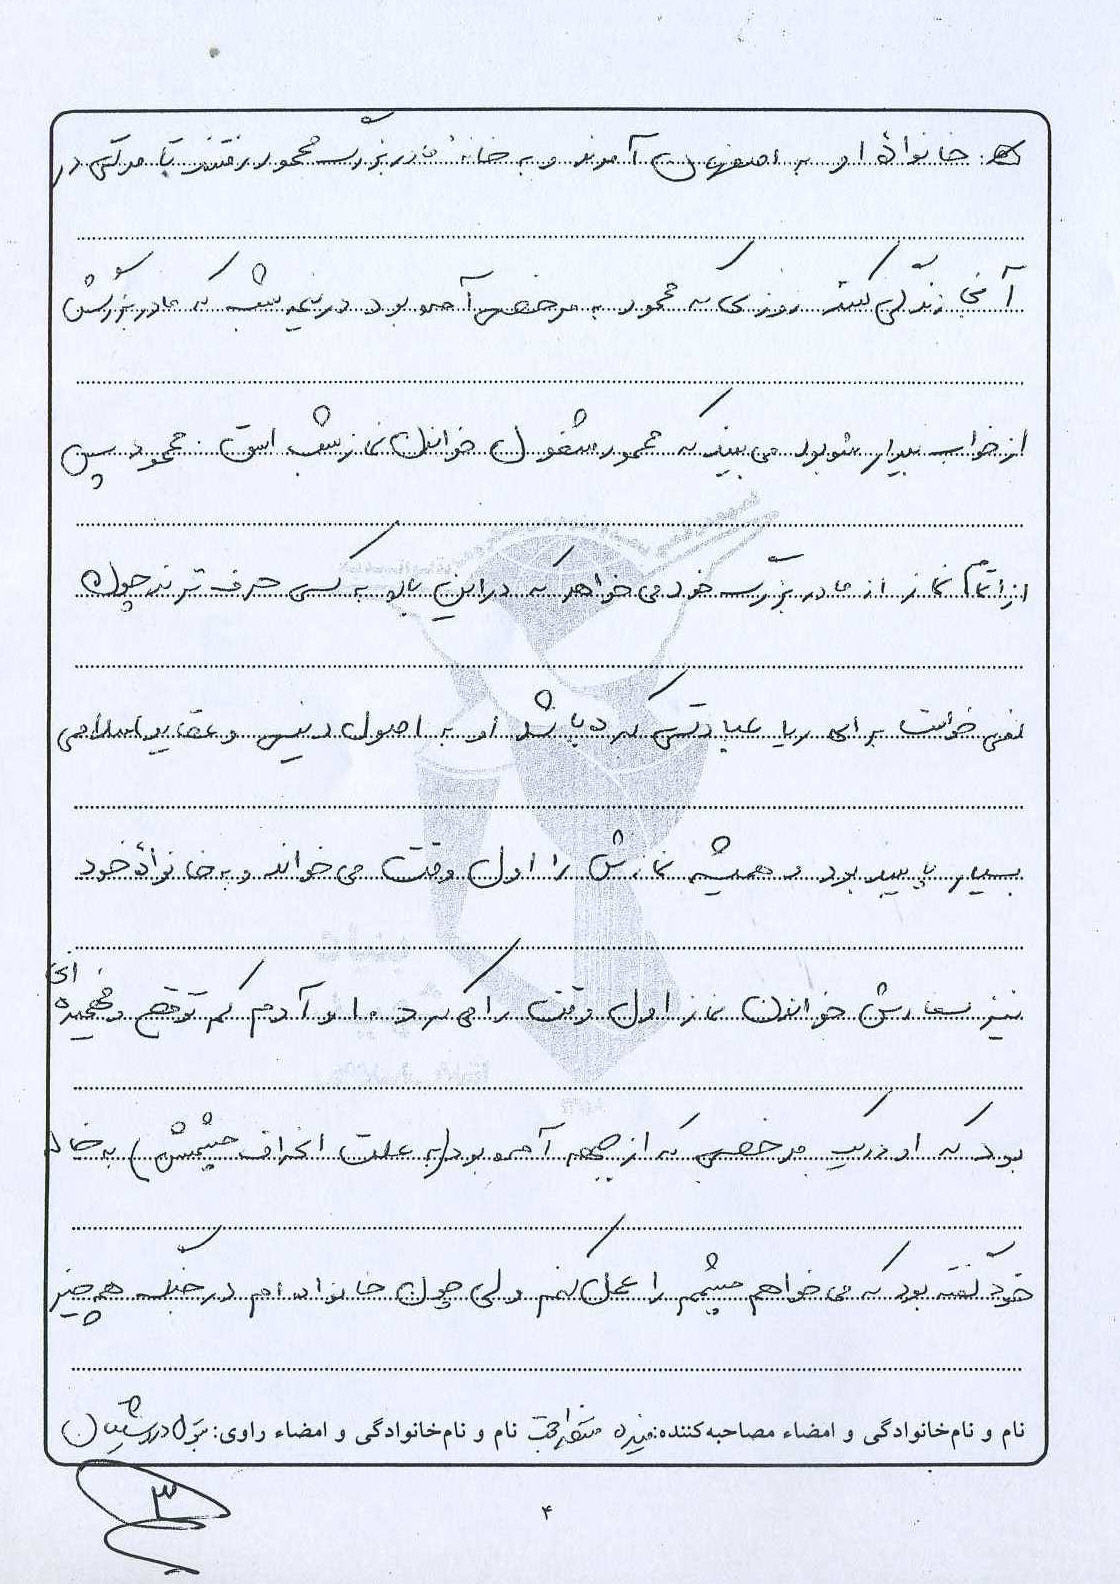 خانوادهٔ او به اصفهان آمدند و به خانهٔ مادربزرگ محمود رفتند تا مدتی در
آنجا زندگی کنند روزی که محمود به مرخصی آمده بود در نیمه شب که مادربزرگش
از خواب بیدار می‌بیند که محمود مشغول خواندن نماز شب است . محمود پس
از اتمام نماز از مادربزرگ خود می خواهد که در این باره به کسی حرف نزند چون
نمی خواست برای ریا عبادتی کرده باشد او به اصول دینی و عقاید اسلامی
بسیار پایبند بود و همیشه نمازش را اول وقت می خواند و به خانوادهٔ خود
نیز سفارش خواندن نماز اول وقت را می کرد . او آدم کم توقع و فهمیده ای
بود که او در یک مرخصی که از جبهه آمده بود (به علت انحراف چشمش) به خاله
خود گفته بود که می خواهم چشمم را عمل کنم ولی چون خانواده ام در جنگ همه چیز
نام و نام‌خانوادگی و امضاء مصاحبه‌کننده: منیره نام و نام‌خانوادگی و امضاء راوی: بتول
۳
۴